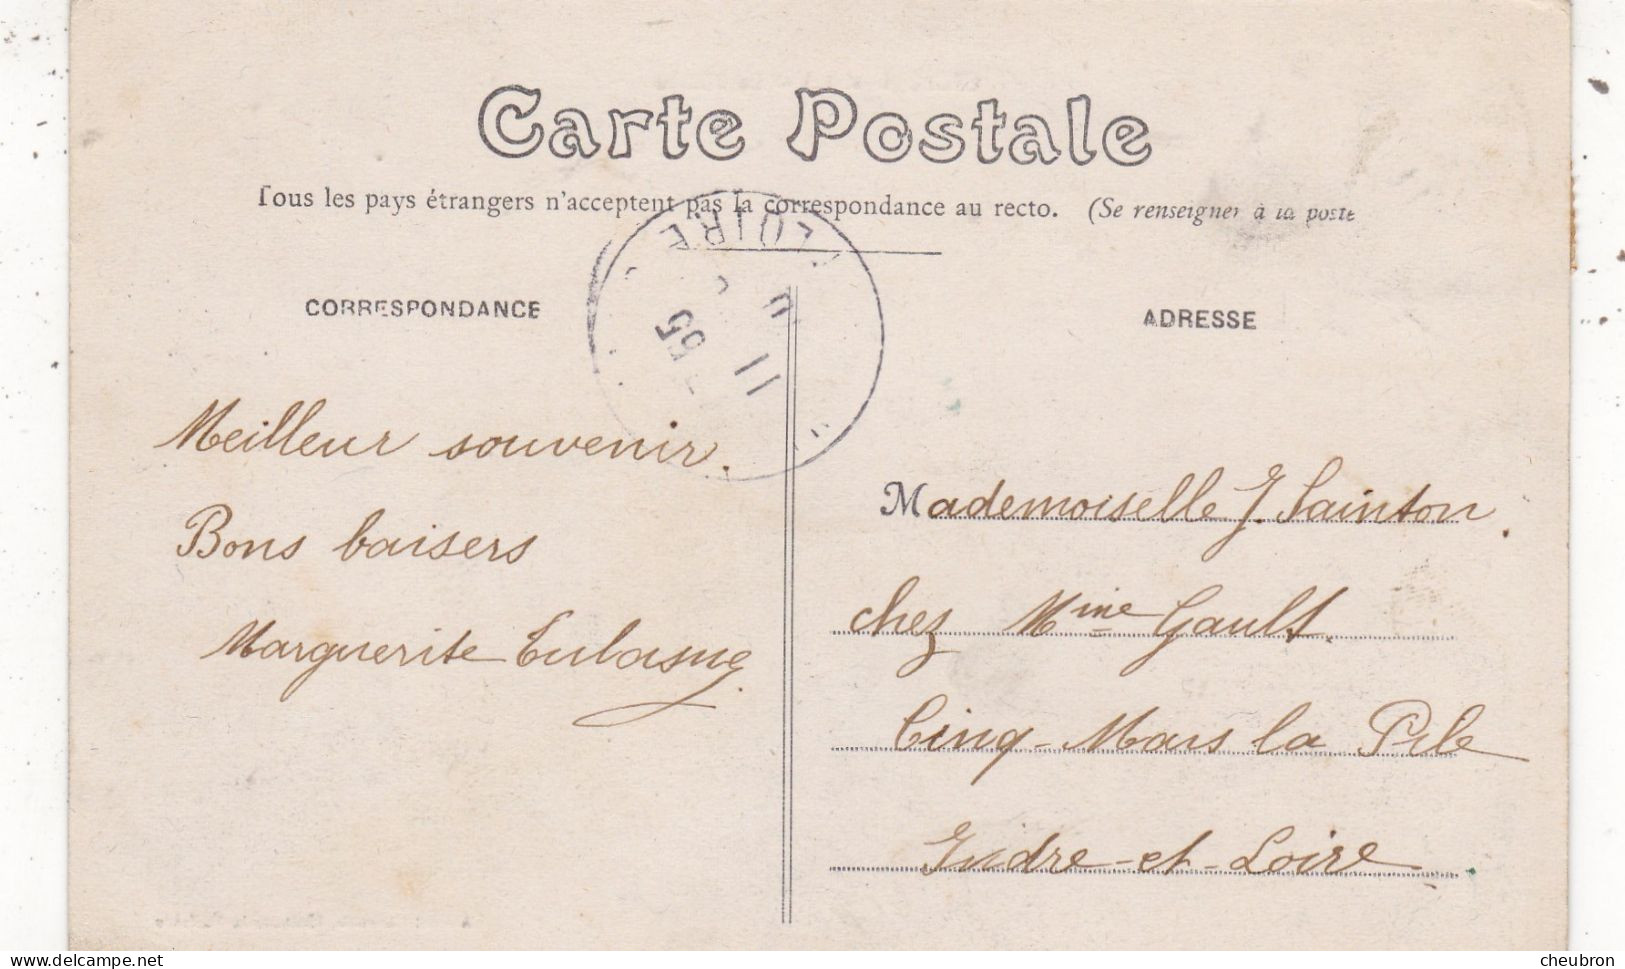 Carte Postale
Tous les pays étrangers n'acceptent pas la correspondance au recto. (Se renseigner à la poste
LOIRE
11
55
CORRESPONDANCE
ADRESSE
Meilleur souvenir.
Bons baisers
Marguerite
Mademoiselle J. Sainton.
chez Mme Gault.
Cinq-Mars la Pile
Indre-et-Loire.
delcampe.net
cheubron